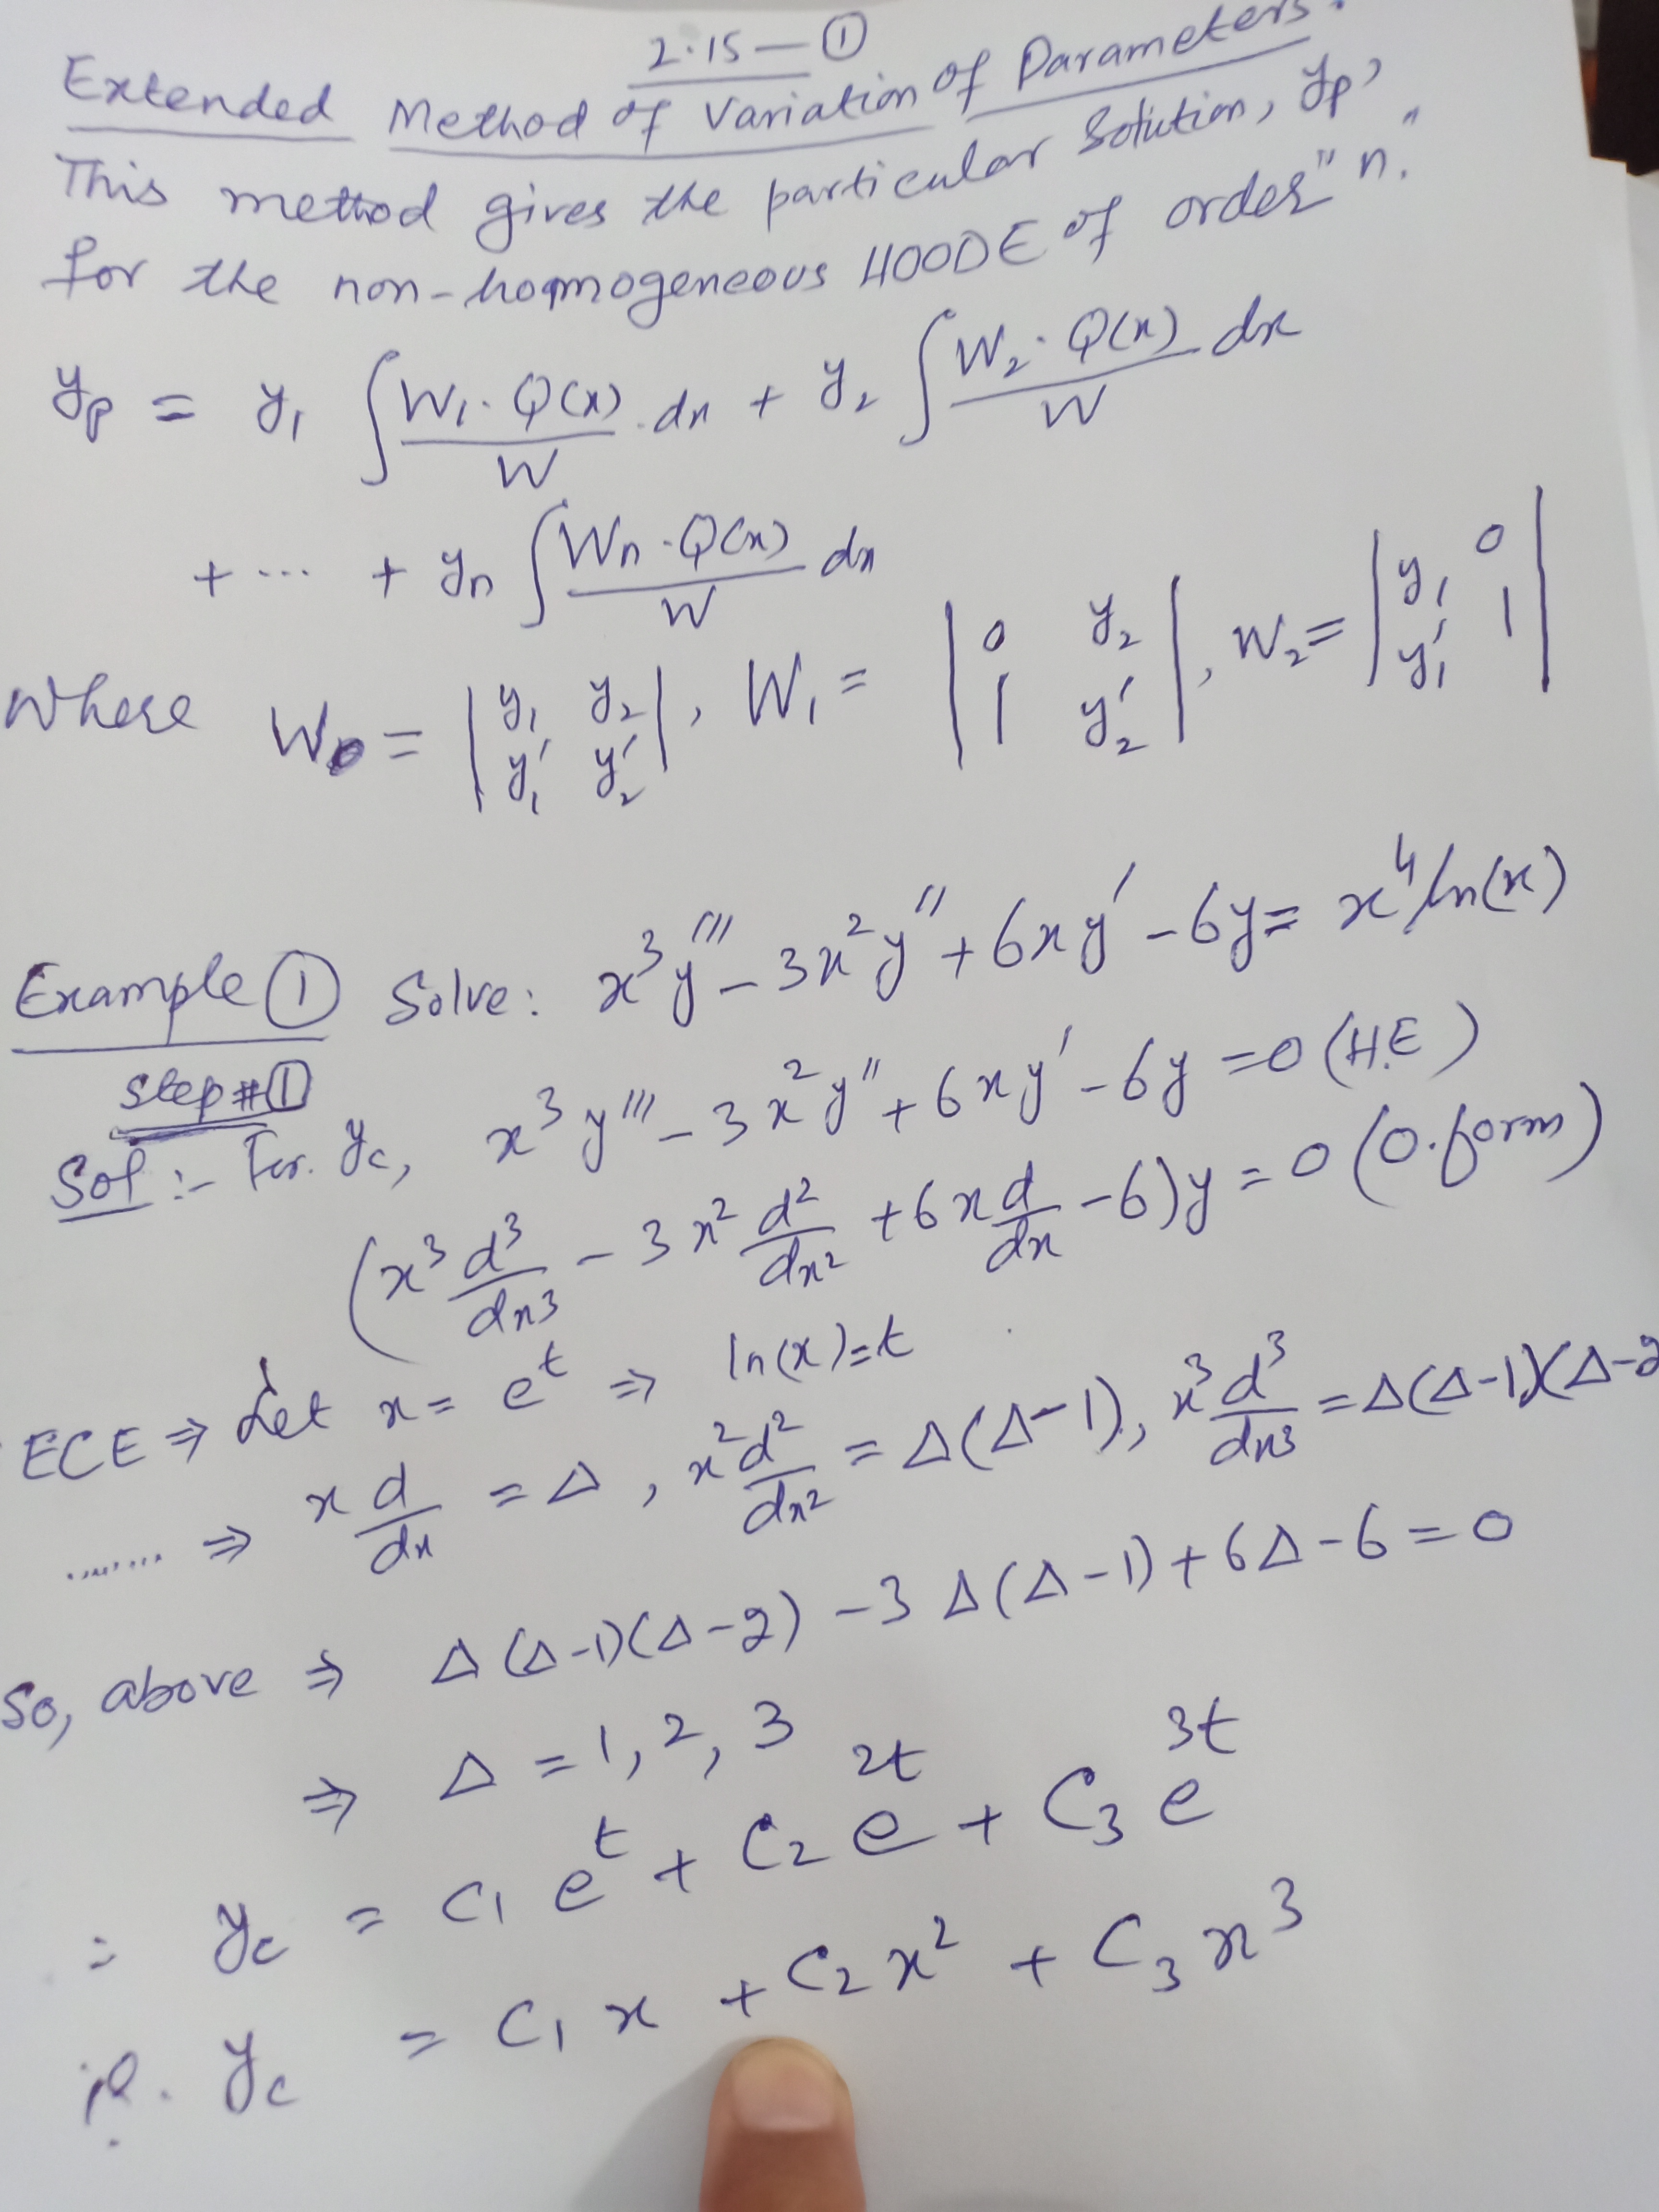 2.15 — ①
Extended Method of Variation of Parameters.
This method gives the particular solution, yp,
for the non-homogeneous HOODE of order "n."
yp = y₁ ∫ W₁·Q(x)/W · dx + y₂ ∫ W₂·Q(x)/W · dx
+ ... + yn ∫ Wn·Q(x)/W dx
Where W = |y₁ y₂; y₁' y₂'|, W₁ = |0 y₂; 1 y₂'|, W₂ = |y₁ 0; y₁' 1|
Example ① Solve: x³y''' - 3x²y'' + 6xy' - 6y = x⁴ ln(x)
Step #①
Sol :- For. yc, x³y''' - 3x²y'' + 6xy' - 6y = 0 (H.E)
(x³ d³/dx³ - 3x² d²/dx² + 6x d/dx - 6)y = 0 (O.form)
ECE ⇒ Let x = eᵗ ⇒ ln(x) = t
....... ⇒ x d/dx = Δ, x² d²/dx² = Δ(Δ-1), x³ d³/dx³ = Δ(Δ-1)(Δ-2
So, above ⇒ Δ(Δ-1)(Δ-2) - 3Δ(Δ-1) + 6Δ - 6 = 0
⇒ Δ = 1, 2, 3
= yc = C₁ eᵗ + C₂ e²ᵗ + C₃ e³ᵗ
ie. yc = C₁ x + C₂ x² + C₃ x³